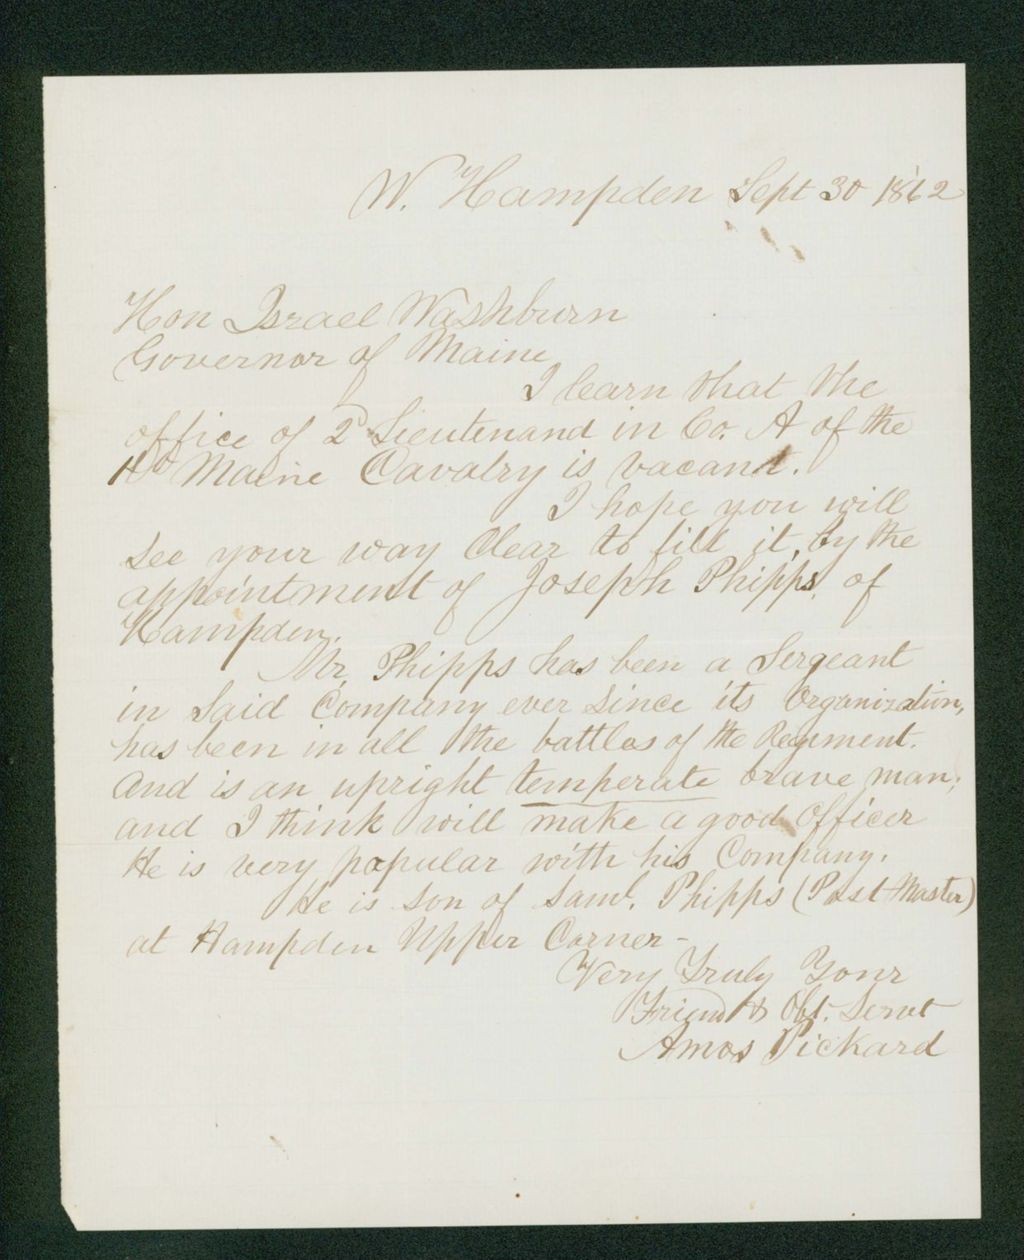 W. Hampden Sept 30 1862
Hon Israel Washburn
Governor of Maine
I learn that the
office of 2d Lieutenand in Co. A of the
Maine Cavalry is vacant.
I hope you will
see your way clear to fill it, by the
appointment of Joseph Phipps, of
Hampden.
Mr. Phipps has been a Sergeant
in said Company ever since its Organization,
has been in all the battles of the Regiment.
And is an upright temperate brave man;
and I think will make a good Officer
He is very popular with his Company.
He is son of Saml. Phipps (Post Master)
at Hampden Upper Corner -
Very Truly Your
Friend & Obt. Servt
Amos Pickard